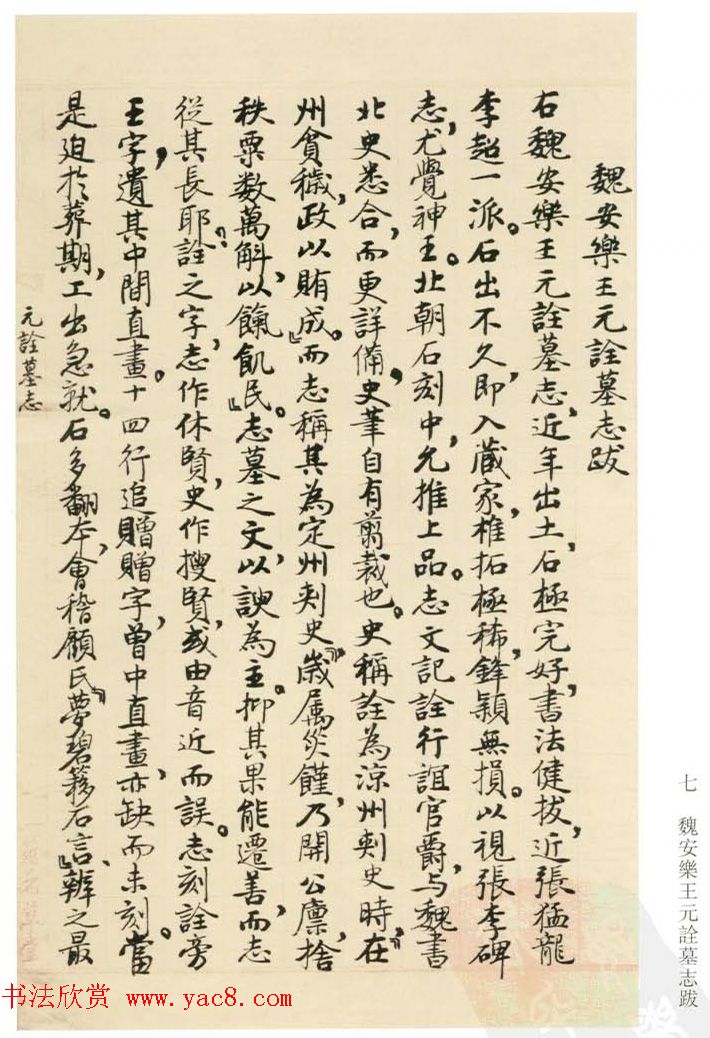 魏安樂王元詮墓志跋
右魏安樂王元詮墓志，近年出土，石極完好，書法健拔，近張猛龍
李超一派。石出不久即入藏家，椎拓極稀，鋒穎無損。以視張李碑
志，尤覺神王。北朝石刻中，允推上品。志文記詮行誼官爵，与魏書
北史悉合，而更詳備，史筆自有剪裁也。史稱詮為涼州刺史時，『在
州貪穢，政以賄成。』而志稱其為定州刺史，『歲属災饉，乃開公廩，捨
秩粟数萬斛，以餼飢民。』志墓之文，以諛為主。抑其果能遷善，而志
從其長耶。詮之字，志作休賢，史作搜賢，或由音近而誤。志刻詮旁
王字，遺其中間直畫。十四行追贈贈字，曾中直畫，亦缺而未刻。當
是迫於葬期，工出急就。石多翻本，會稽顧氏『夢碧簃石言』，辨之最
元詮墓志
七 魏安樂王元詮墓志跋
书法欣赏 www.yac8.com